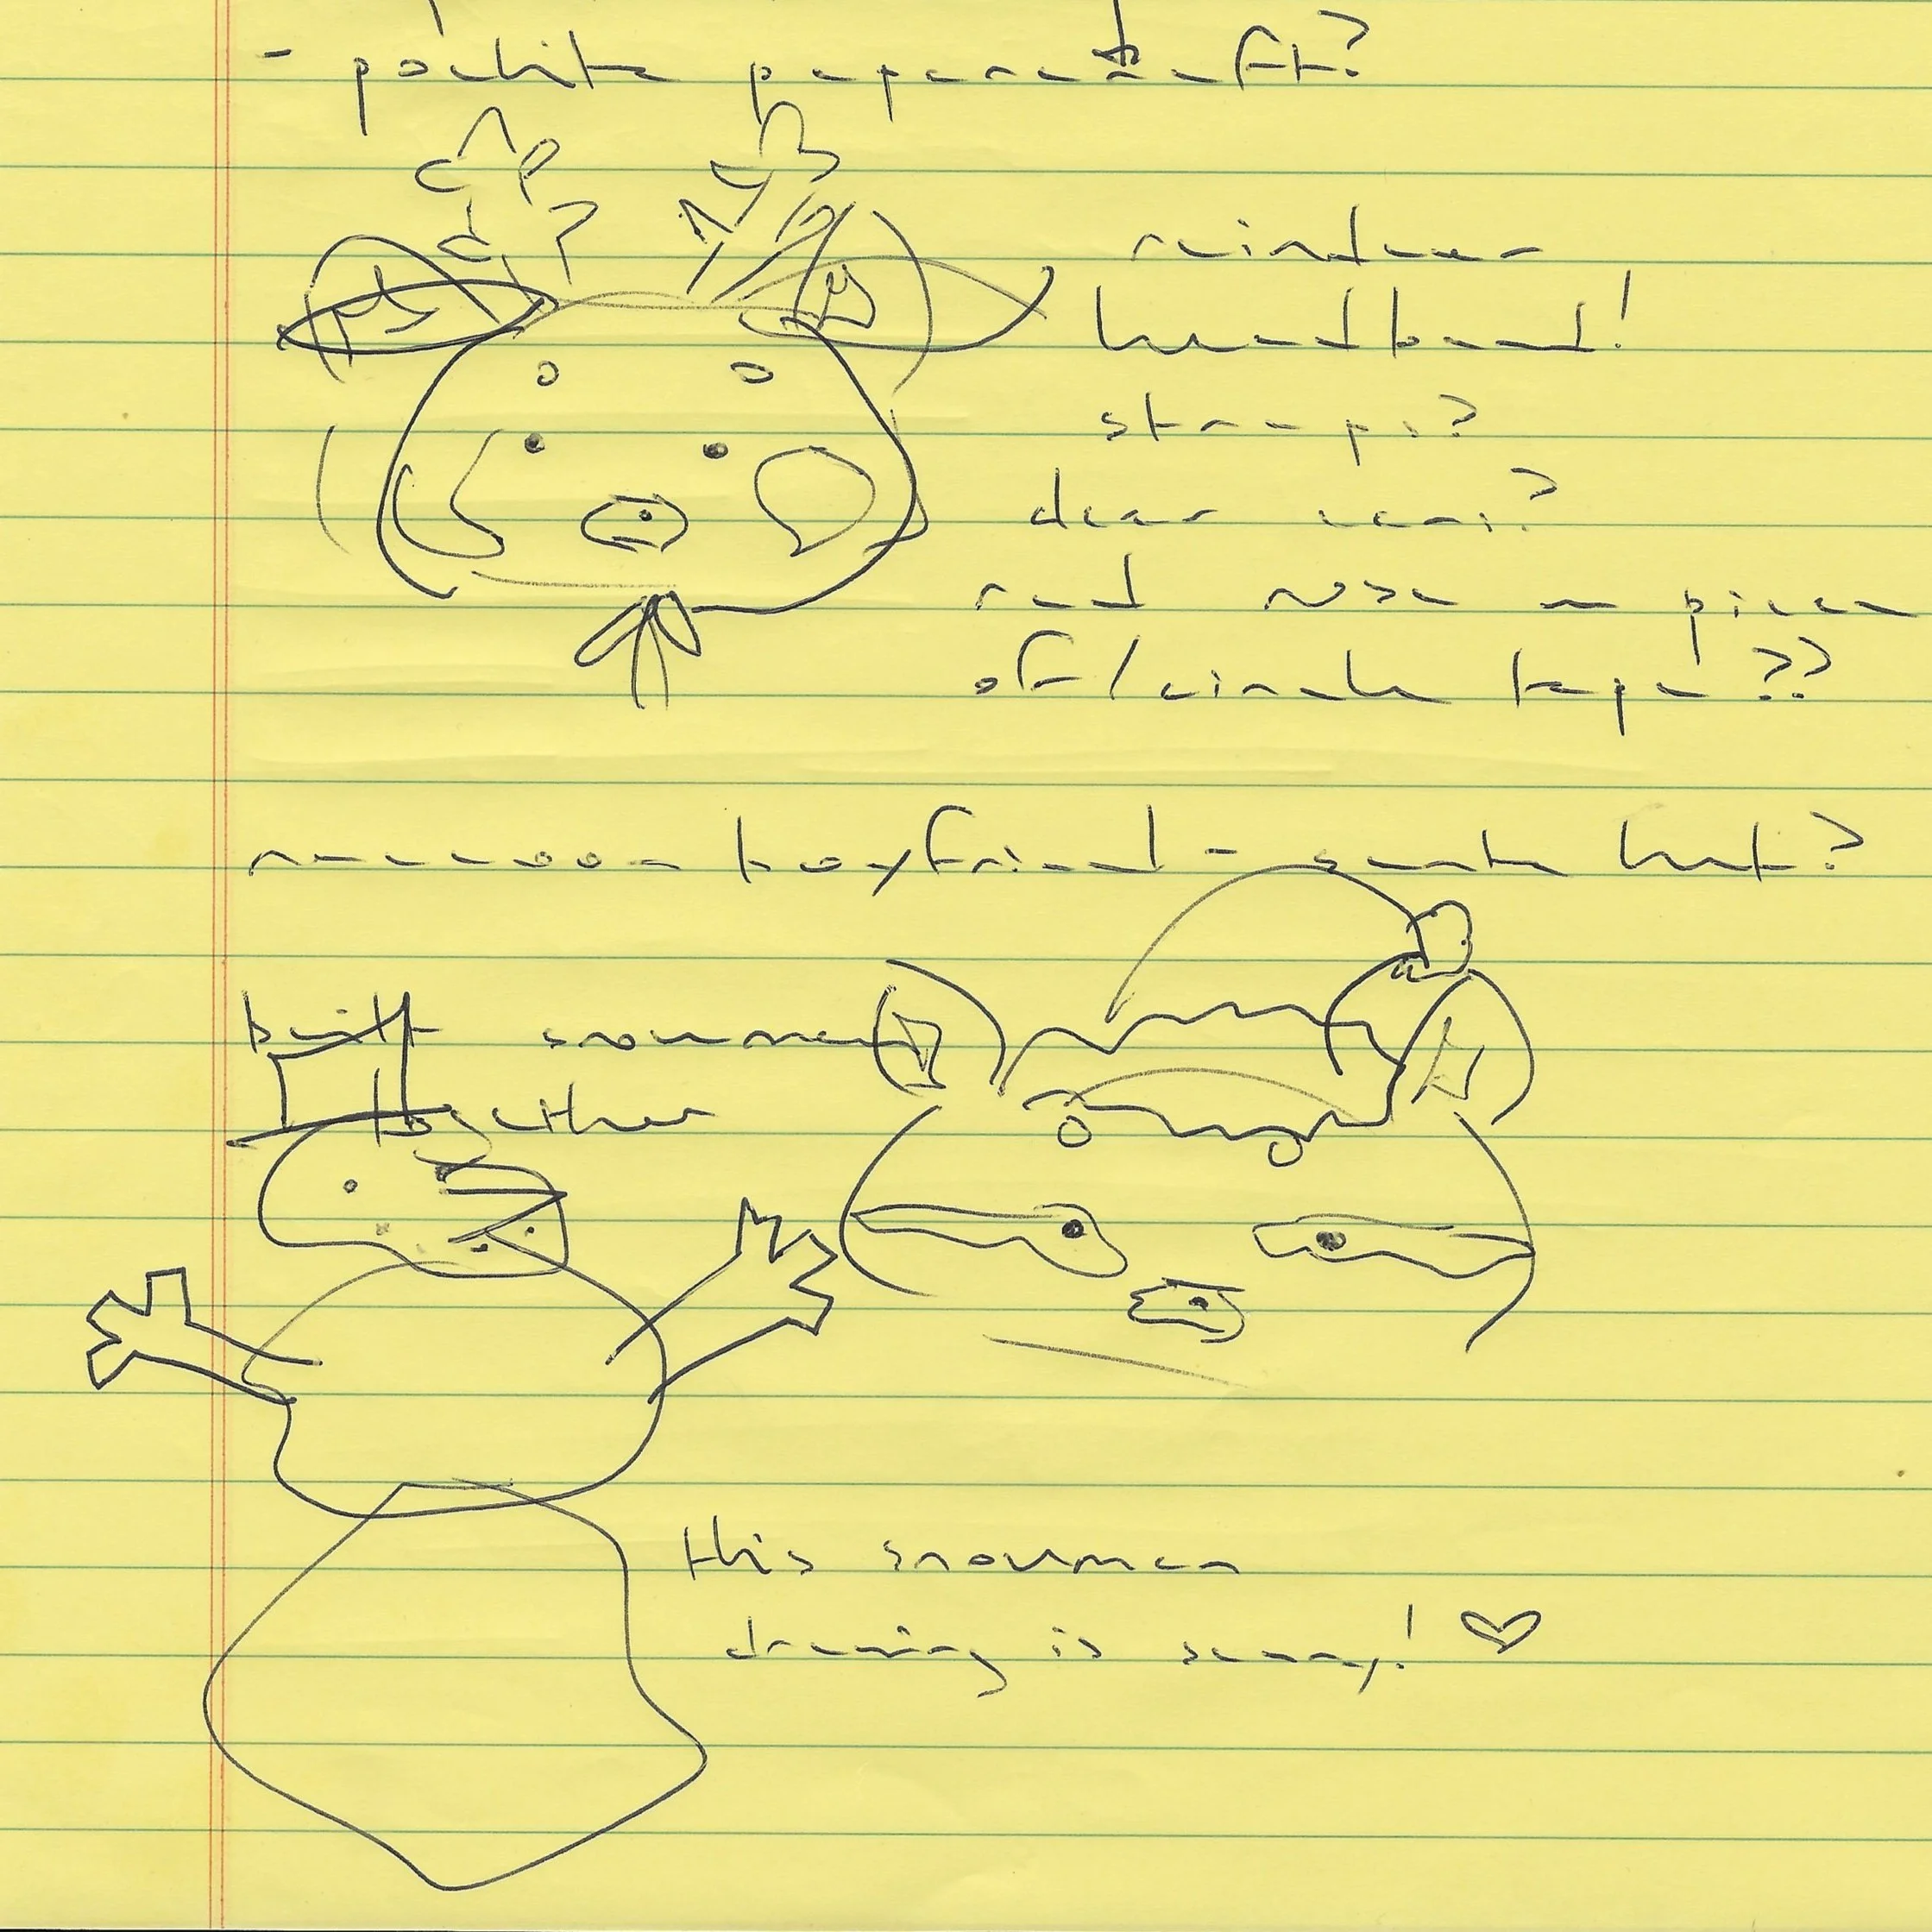 - pochita papercraft?
reindeer
headband!
straps?
dear ears?
red nose - piece
of / circle tape??
raccoon boyfriend - santa hat?
built snowmen
together
this snowman
drawing is scary! ♡